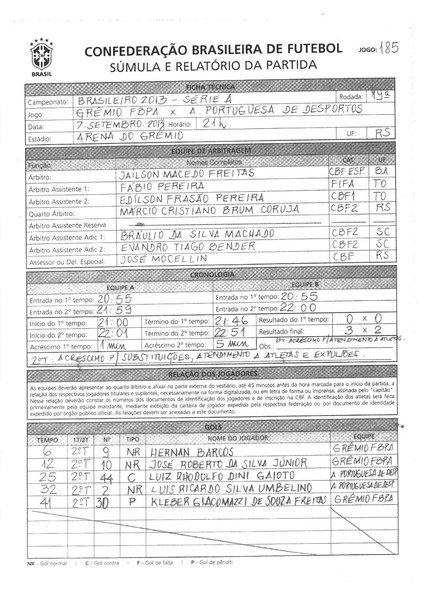 CONFEDERAÇÃO BRASILEIRA DE FUTEBOL JOGO: 185
BRASIL
SÚMULA E RELATÓRIO DA PARTIDA
FICHA TÉCNICA
Campeonato: BRASILEIRO 2013 - SÉRIE A Rodada: 19ª
Jogo: GRÊMIO FBPA X A PORTUGUESA DE DESPORTOS
Data: 7. SETEMBRO. 2013 Horário: 21h
Estádio: ARENA DO GRÊMIO UF: RS
EQUIPE DE ARBITRAGEM
Função Nomes Completos CAT. UF
Árbitro: JAILSON MACEDO FREITAS CBF ESP. BA
Árbitro Assistente 1: FÁBIO PEREIRA FIFA TO
Árbitro Assistente 2: EDILSON FRASÃO PEREIRA CBF1 TO
Quarto Árbitro: MÁRCIO CRISTIANO BRUM CORUJA CBF2 RS
Árbitro Assistente Reserva
Árbitro Assistente Adic 1: BRÁULIO DA SILVA MACHADO CBF2 SC
Árbitro Assistente Adic 2: EVANDRO TIAGO BENDER CBF2 SC
Assessor ou Del. Especial: JOSÉ MOCELLIN CBF RS
CRONOLOGIA
EQUIPE A EQUIPE B
Entrada no 1º tempo: 20:55 Entrada no 1º tempo: 20:55
Entrada no 2º tempo: 21:59 Entrada no 2º tempo: 22:00
Início do 1º tempo: 21:00 Término do 1º tempo: 21:46 Resultado do 1º tempo: 0 X 0
Início do 2º tempo: 22:01 Término do 2º tempo: 22:51 Resultado final: 3 X 2
Acréscimo 1º tempo: 1 MIN Acréscimo 2º tempo: 5 MIN Obs.: 1T: ACRÉSCIMO P/ATENDIMENTO A ATLETAS.
2ºT: ACRÉSCIMO P/SUBSTITUIÇÕES, ATENDIMENTO A ATLETAS E EXPULSÕES.
RELAÇÃO DOS JOGADORES
As equipes deverão apresentar ao quarto árbitro e afixar na parte externa do vestiário, até 45 minutos antes da hora marcada para o início da partida, a
relação dos respectivos jogadores titulares e suplentes, necessariamente na forma digitalizada, ou em letra de forma ou imprensa, assinada pelo "capitão".
Nessa relação deverão constar os números dos documentos de identificação dos jogadores e de inscrição na CBF. A identificação dos atletas será feita
primeiramente pela equipe mandante, mediante exibição da carteira de jogador expedida pela respectiva federação ou por documento de identidade
expedido por órgão público oficial. As relações devem ser anexadas a este documento.
GOLS
TEMPO 1T/2T Nº TIPO NOME DO JOGADOR EQUIPE
6 2ºT 9 NR HERNAN BARCOS GRÊMIO FBPA
12 2ºT 10 NR JOSÉ ROBERTO DA SILVA JÚNIOR GRÊMIO FBPA
25 2ºT 44 C LUIZ RHODOLFO DINI GAIOTO A PORTUGUESA DE DESP.
32 2ºT 2 NR LUIS RICARDO SILVA UMBELINO A PORTUGUESA DE DESP.
41 2ºT 30 P KLEBER GIACOMAZZI DE SOUZA FREITAS GRÊMIO FBPA
NR - Gol normal | C - Gol contra | F - Gol de falta | P - Gol de pênalti